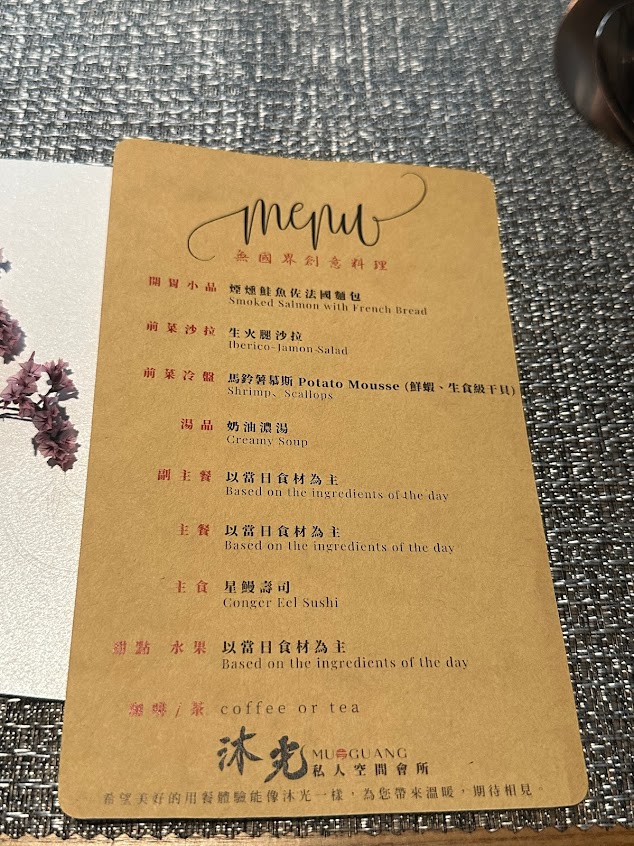 menu
無國界創意料理
開胃小品 煙燻鮭魚佐法國麵包
Smoked Salmon with French Bread
前菜沙拉 生火腿沙拉
Iberico-Jamon Salad
前菜冷盤 馬鈴薯慕斯 Potato Mousse (鮮蝦、生食級干貝)
Shrimp、Scallops
湯品 奶油濃湯
Creamy Soup
副主餐 以當日食材為主
Based on the ingredients of the day
主餐 以當日食材為主
Based on the ingredients of the day
主食 星鰻壽司
Conger Eel Sushi
甜點 水果 以當日食材為主
Based on the ingredients of the day
咖啡/茶 coffee or tea
沐光 MU GUANG
私人空間會所
希望美好的用餐體驗能像沐光一樣，為您帶來溫暖，期待相見。